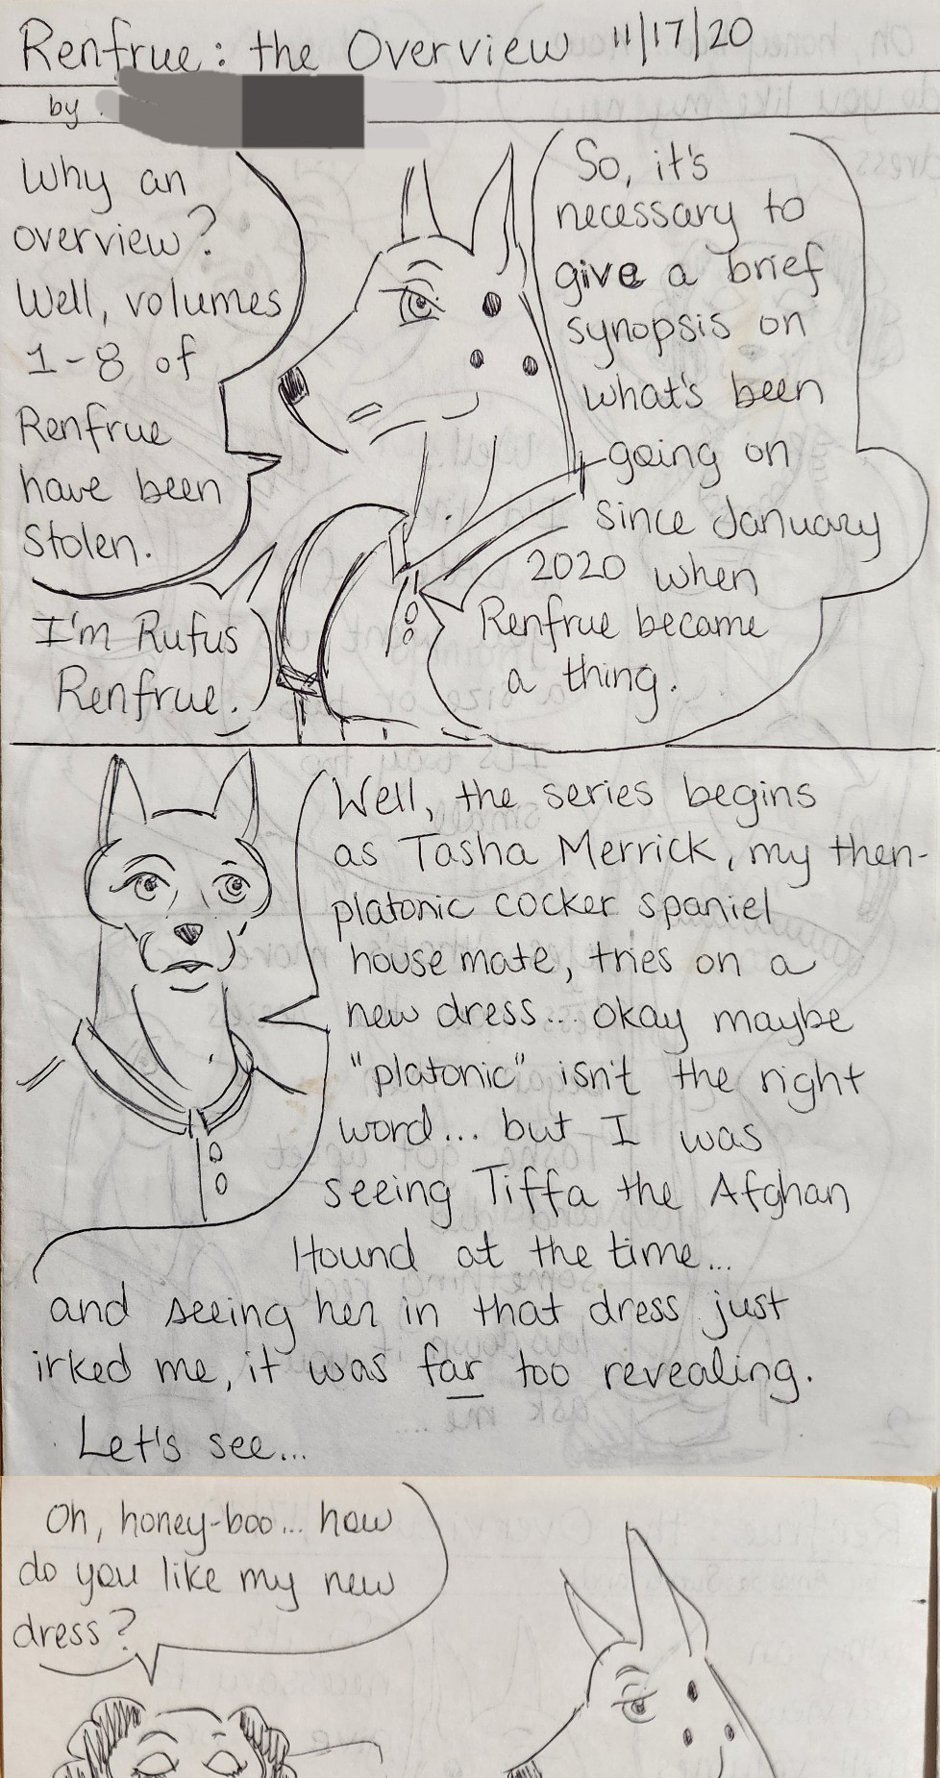 Renfrue: the Overview 11/17/20
by
Why an
overview?
Well, volumes
1-8 of
Renfrue
have been
stolen.
I'm Rufus
Renfrue.
So, it's
necessary to
give a brief
synopsis on
what's been
going on
since January
2020 when
Renfrue became
a thing.
Well, the series begins
as Tasha Merrick, my then-
platonic cocker spaniel
house mate, tries on a
new dress... okay maybe
"platonic" isn't the right
word... but I was
seeing Tiffa the Afghan
Hound at the time...
and seeing her in that dress just
irked me, it was far too revealing.
Let's see...
Oh, honey-boo... how
do you like my new
dress?